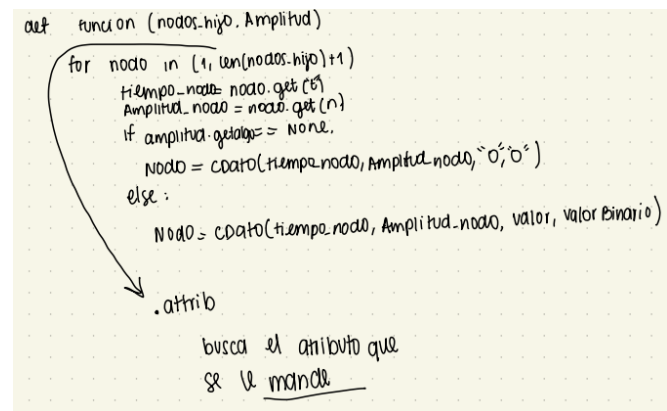 def funcion (nodos-hijo, Amplitud)
for nodo in (1, len(nodos-hijo)+1)
tiempo_nodo= nodo.get(t)
Amplitud_nodo = nodo.get(n)
if amplitud.getalgo== None.
Nodo = CDato(tiempo nodo, Amplitud nodo, "0","0")
else :
Nodo = CDato(tiempo_nodo, Amplitud_nodo, valor, valor Binario)
.attrib
busca el atributo que
se le mande